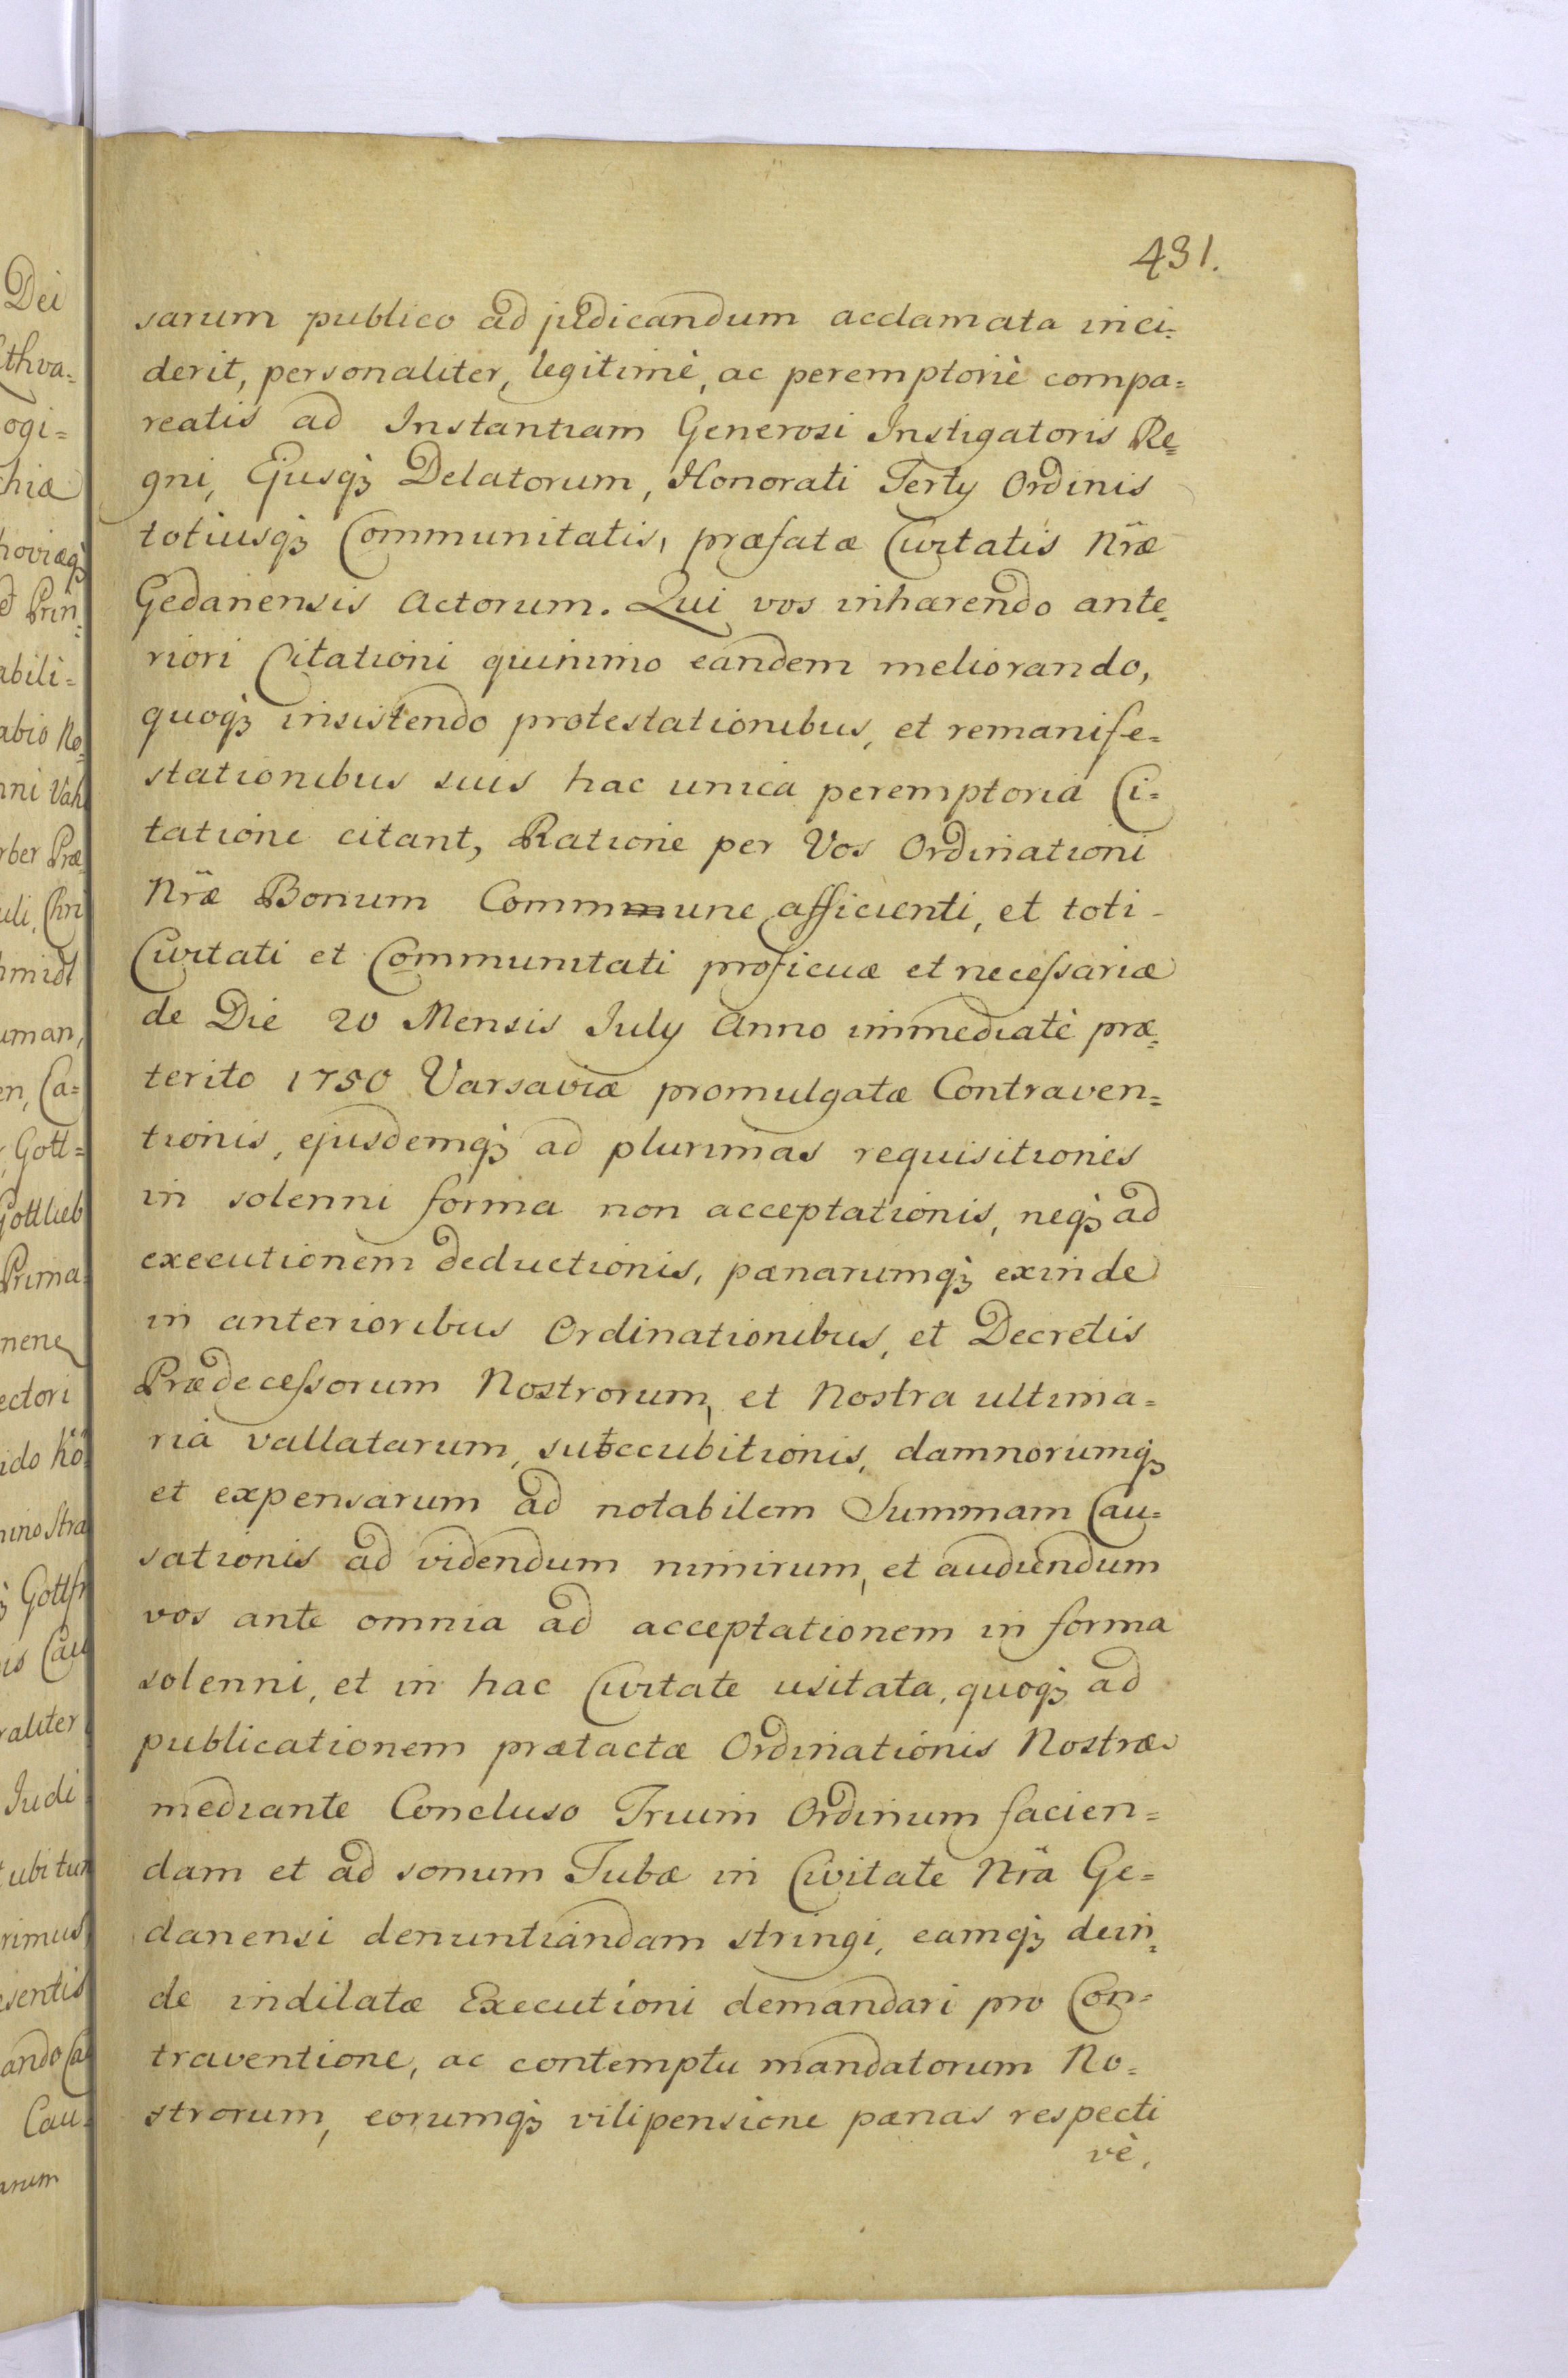 431.
sarum publico ad judicandum acclamata inci=
derit, personaliter, legitimè, ac peremptoriè compa=
reatis ad Instantiam Generosi Instigatoris Re=
gni, Ejusq; Delatorum, Honorati Tertÿ Ordinis
totiusq; Communitatis, præfatæ Civitatis Nr̃æ
Gedanensis Actorum. Qui vos inhærendo ante=
riori Citationi quinimo eandem meliorando,
quoq; insistendo protestationibus, et remanife=
stationibus suis hac unica peremptoria Ci=
tatione citant, Ratione per Vos Ordinationi
Nr̃æ Bonum Commune afficienti, et toti
Civitati et Communitati proficuæ et necessariæ
de Die 20 Mensis Julÿ Anno immediatè præ=
terito 1750 Varsaviæ promulgatæ Contraven=
tionis, ejusdemq; ad plurimas requisitiones
in solenni forma non acceptationis, neq; ad
executionem deductionis, pænarumq; exinde
in anterioribus Ordinationibus, et Decretis
Prædecessorum Nostrorum, et Nostra ultima=
ria vallatarum, succubitionis, damnorumq;
et expensarum ad notabilem Summam Cau=
sationis ad videndum nimirum, et audiendum
vos ante omnia ad acceptationem in forma
solenni, et in hac Civitate usitata, quoq; ad
publicationem prætactæ Ordinationis Nostræ
mediante Concluso Trium Ordinum facien=
dam et ad sonum Tubæ in Civitate Nr̃a Ge=
danensi denuntiandam stringi, eamq; dein=
de indilatæ Executioni demandari pro Con=
traventione, ac contemptu mandatorum No=
strorum, eorumq; vilipensione pænas respecti
vè,
Dei
thva=
ogi=
hiæ
hoviæq;
Prin=
abili=
abio No=
nni Vah
rber Præ=
uli, Chri
hmidt
uman,
en, Ca=
Gott=
Gottlieb
Prima=
nene
ectori
ido Kö=
mino Stra
Gottfr
is Cau
raliter
Judi
ubi tun
rimus
esentis
ando Ca
Cau=
arum